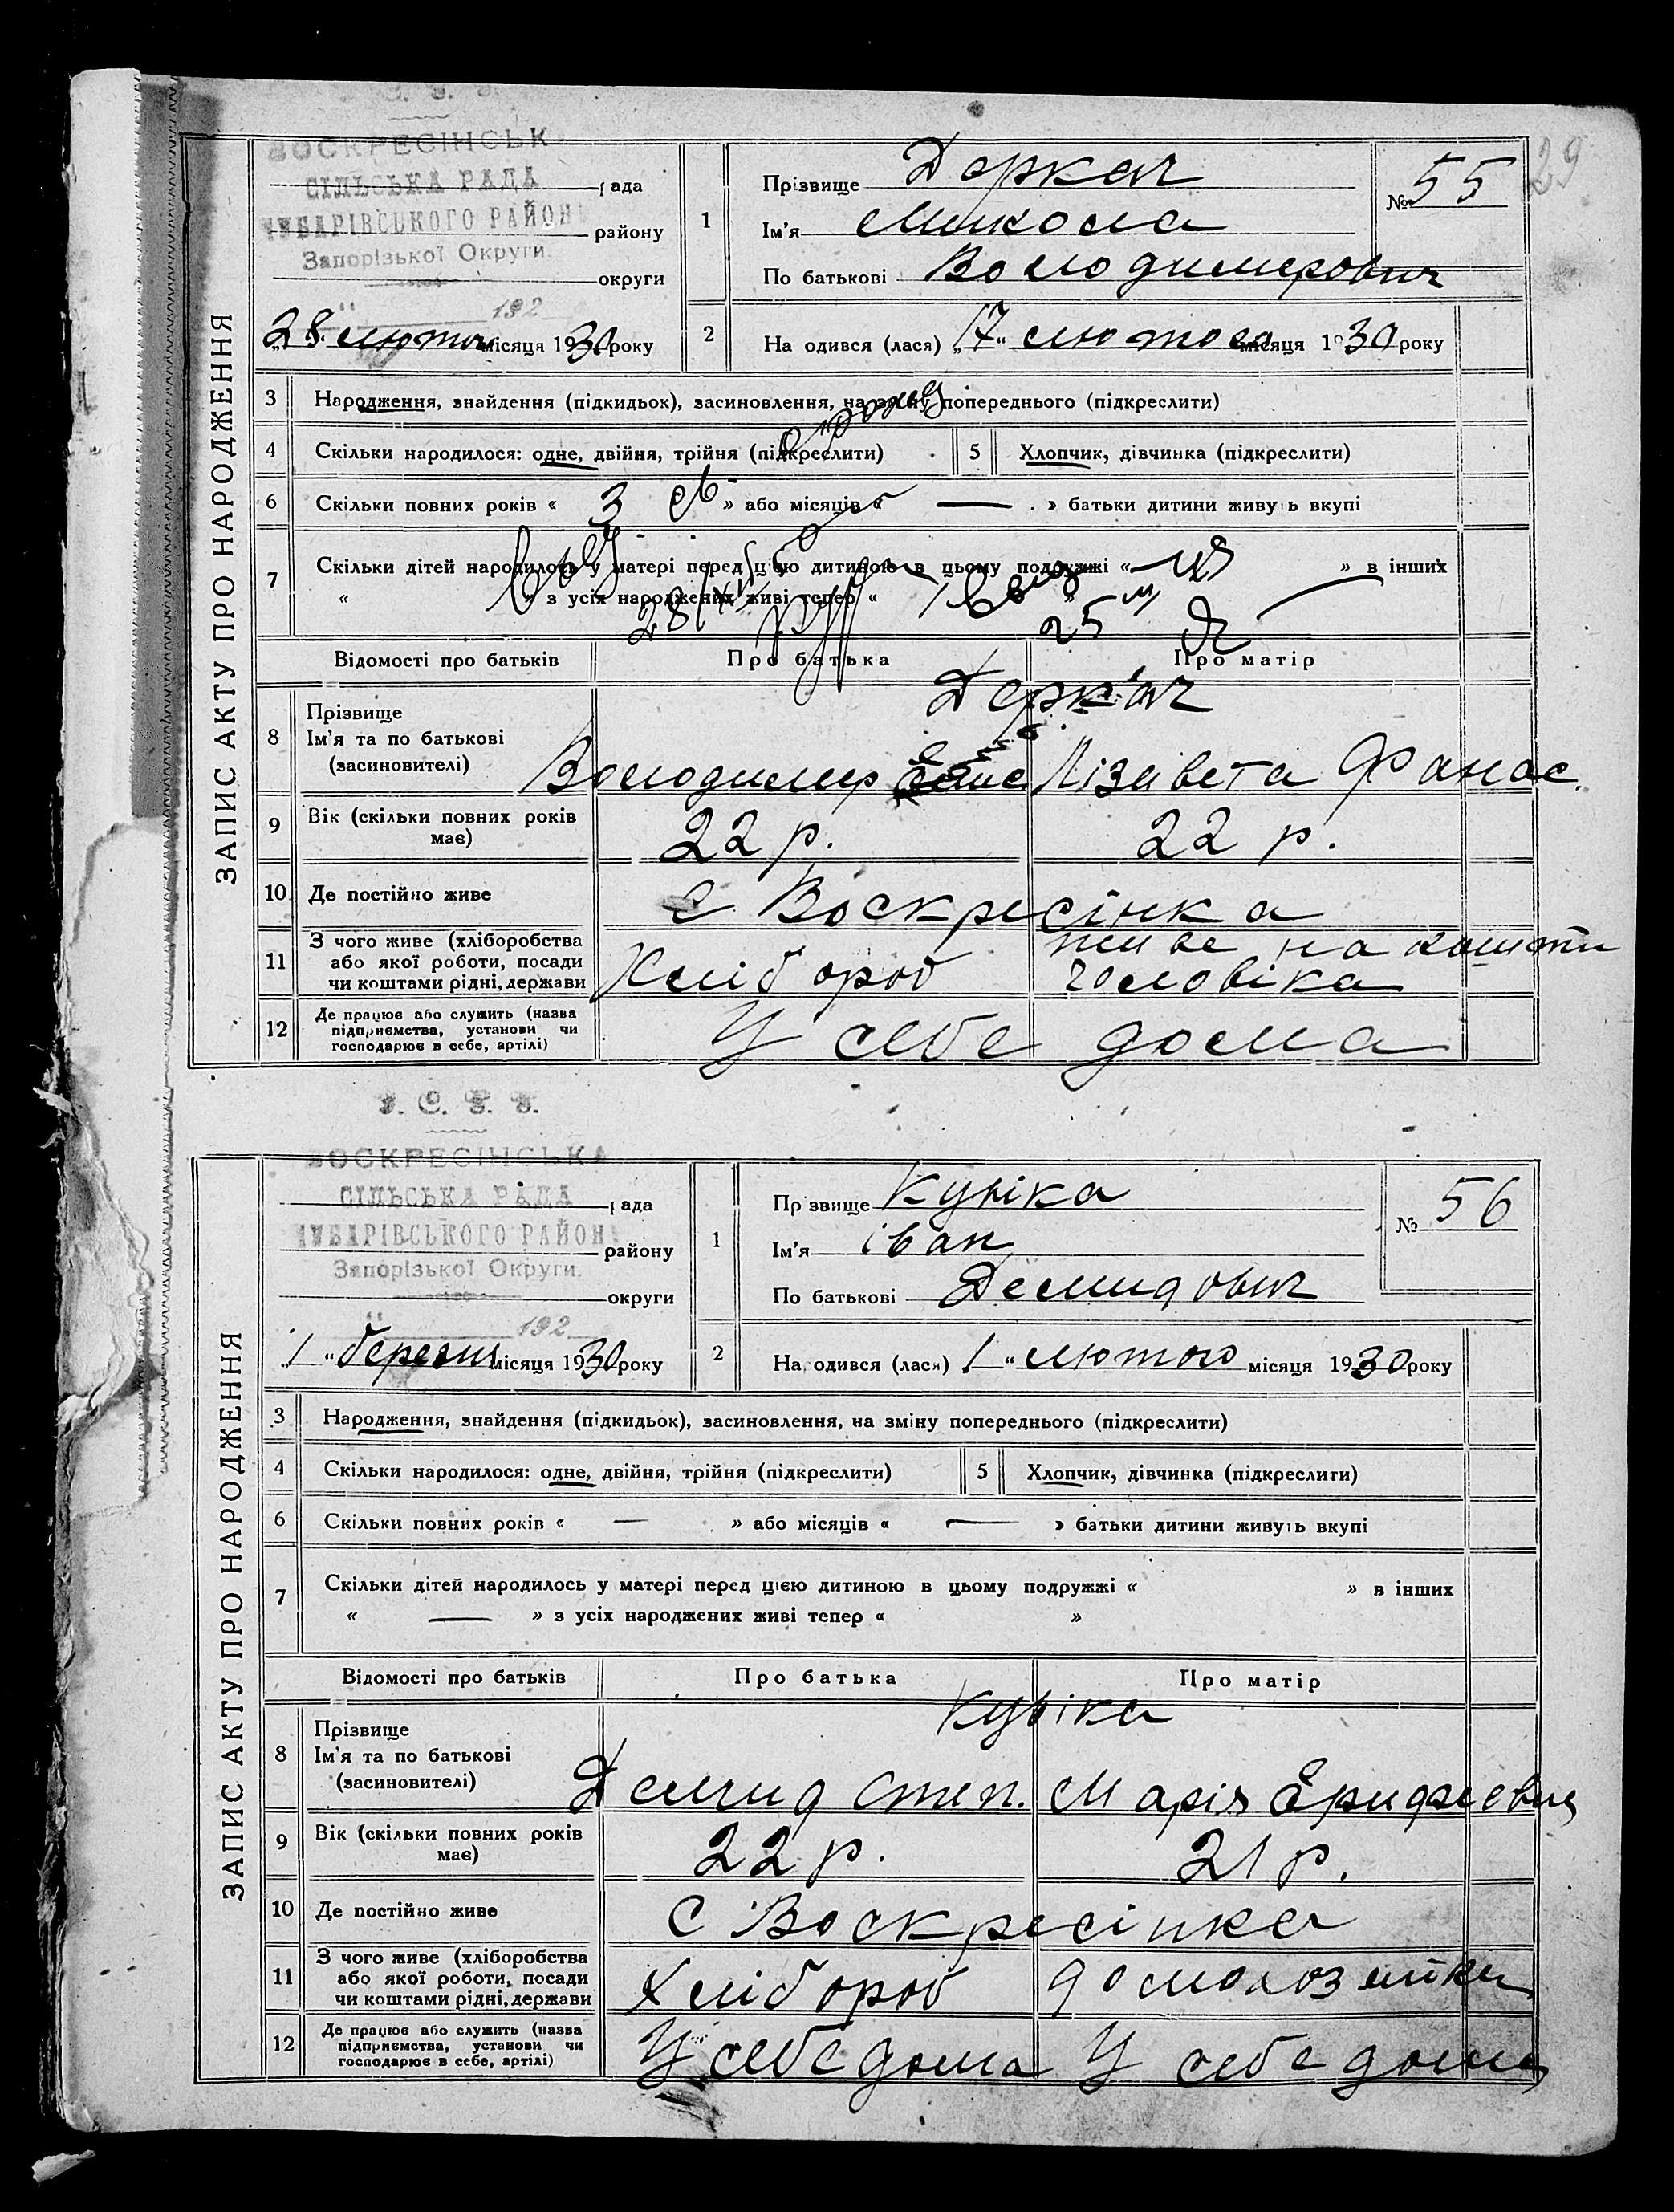 29
ЗАПИС АКТУ ПРО НАРОДЖЕННЯ
ВОСКРЕСІНСЬК
СІЛЬСЬКА РАДА
рада
ЧУБАРІВСЬКОГО РАЙОН
району
Запорізької Округи
округи
192
„28“ лютого місяця 1930 року
1
Прізвище Деркач
№ 55
Ім'я Микола
По батькові Володимерович
2
На одився (лася) „17“ лютого місяця 1930 року
3 Народження, знайдення (підкидьок), засиновлення, на зміну попереднього (підкреслити)
4 Скільки народилося: одне, двійня, трійня (підкреслити)
5 Хлопчик, дівчинка (підкреслити)
6 Скільки повних років « 3 » або місяців « — » батьки дитини живуть вкупі
7 Скільки дітей народилось у матері перед цією дитиною в цьому подружжі « » в інших
« » з усіх народжених живі тепер « »
Відомості про батьків Про батька Про матір
8 Прізвище
Ім'я та по батькові
(засиновителі)
Деркач
Володимер Лізавета Фанас.
9 Вік (скільки повних років має)
22 р. 22 р.
10 Де постійно живе
с Воскресінка
11 З чого живе (хліборобства
або якої роботи, посади
чи коштами рідні, держави
Хлібороб
живе на кошти
чоловіка
12 Де працює або служить (назва
підприємства, установи чи
господарює в себе, артілі)
У себе дома
ЗАПИС АКТУ ПРО НАРОДЖЕННЯ
ВОСКРЕСІНСЬКА
СІЛЬСЬКА РАДА
рада
ЧУБАРІВСЬКОГО РАЙОН
району
Запорізької Округи.
округи
192
„1“ березня місяця 1930 року
1
Прізвище Куріка
№ 56
Ім'я іван
По батькові Демидович
2
На одився (лася) 1 “ лютого місяця 1930 року
3 Народження, знайдення (підкидьок), засиновлення, на зміну попереднього (підкреслити)
4 Скільки народилося: одне, двійня, трійня (підкреслити)
5 Хлопчик, дівчинка (підкреслити)
6 Скільки повних років « — » або місяців « — » батьки дитини живуть вкупі
7 Скільки дітей народилось у матері перед цією дитиною в цьому подружжі « » в інших
« — » з усіх народжених живі тепер « »
Відомості про батьків Про батька Про матір
8 Прізвище
Ім'я та по батькові
(засиновителі)
Куріка
Демид Степ. Марія
9 Вік (скільки повних років має)
22 р. 21 р.
10 Де постійно живе
с Воскресінка
11 З чого живе (хліборобства
або якої роботи, посади
чи коштами рідні, держави
Хлібороб домохозяйка
12 Де працює або служить (назва
підприємства, установи чи
господарює в себе, артілі)
У себе дома У себе дома